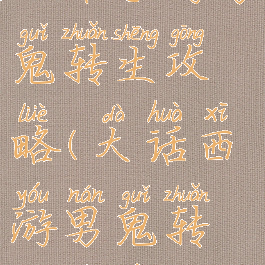 guǐ zhuǎn shēng gōng
鬼转生攻
lüè dà huà xī
略(大话西
yóu nán guǐ zhuǎn
游男鬼转